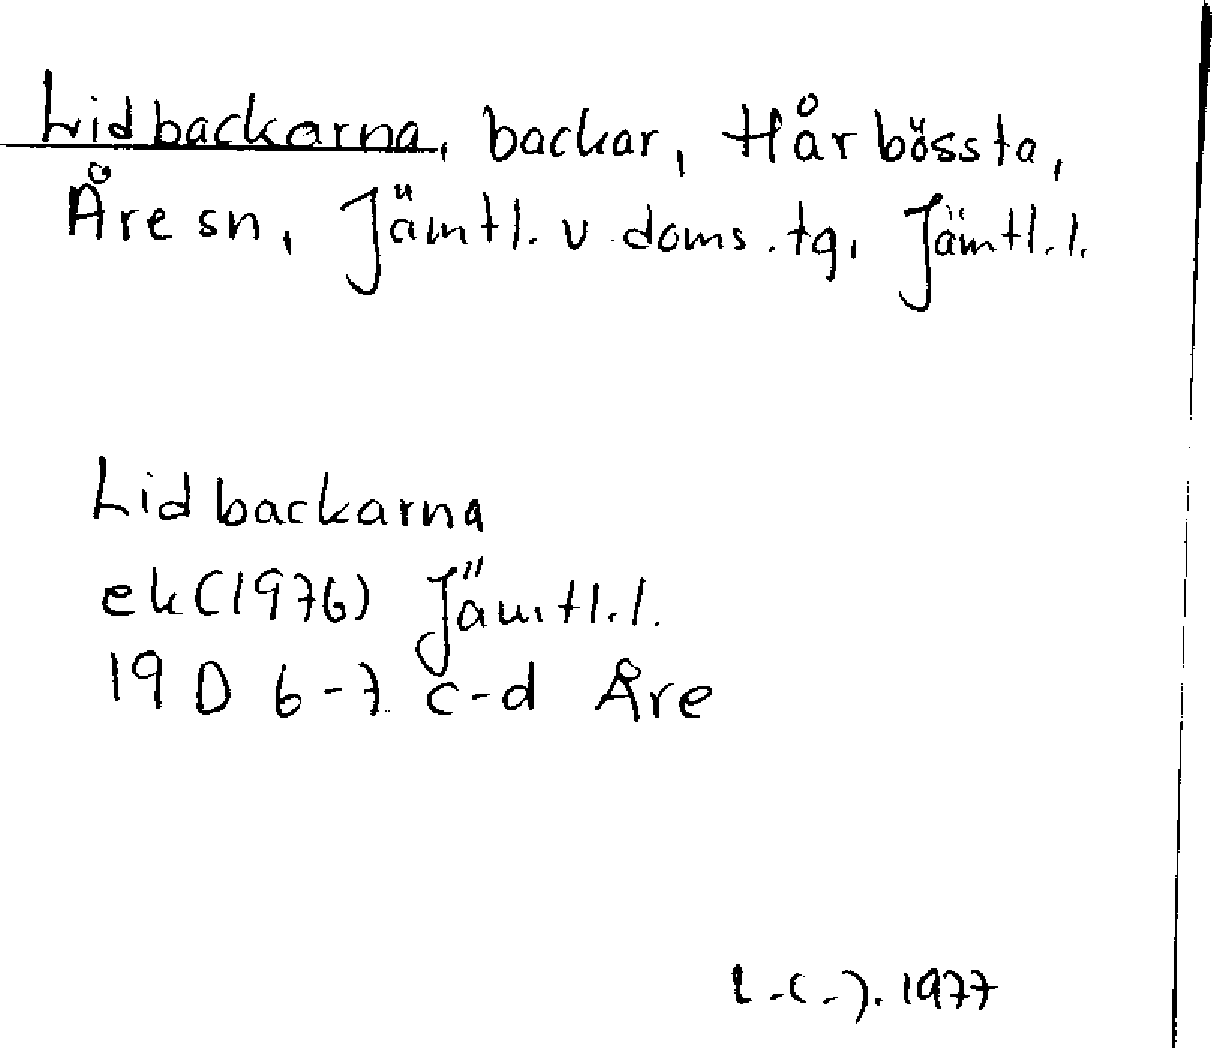 Lidbackarna, backar, Hårbössta,
Åre sn, Jämtl. v doms.tg, Jämtl.l.
Lidbackarna
ek(1976) Jämtl.l.
19 D 6-7 c-d Åre
1977